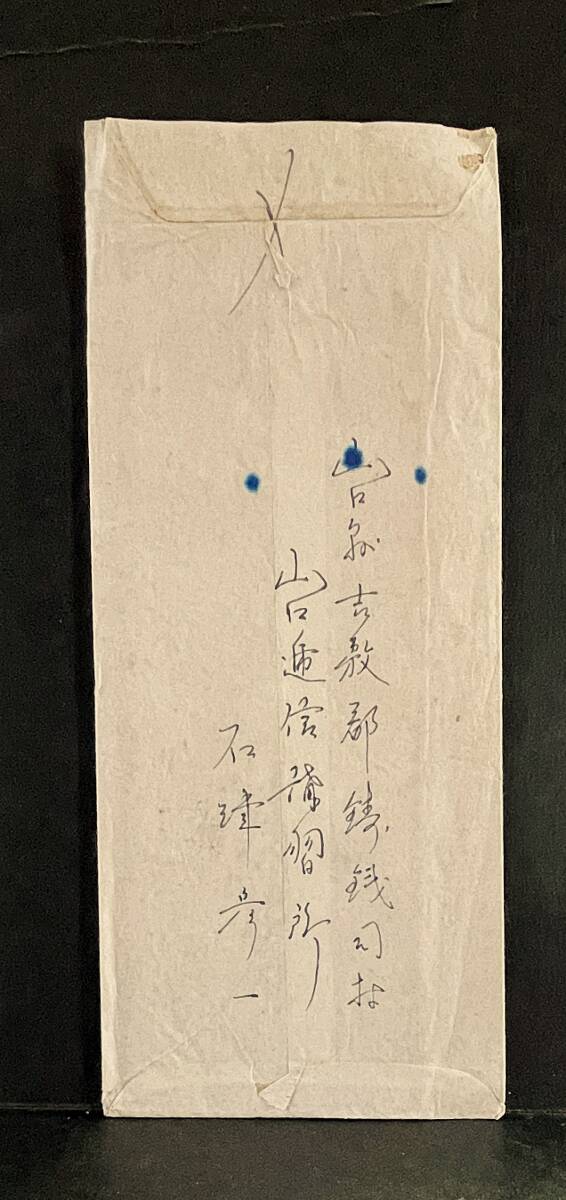 〆
山口県吉敷郡鋳銭司村
山口逓信講習所
石津彦一